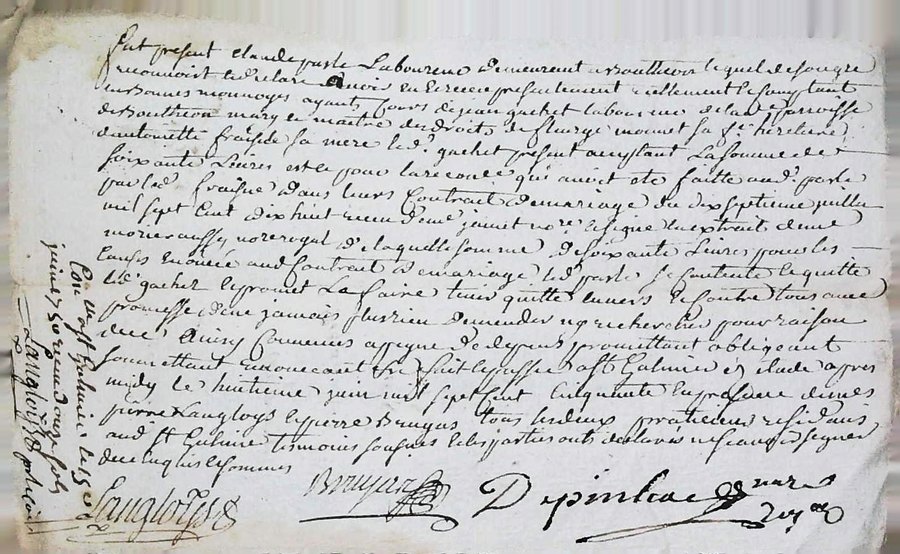 fut présent claude parte Laboureur demeurant a Bouthéon lequel de son gré
reconnoist et declare avoir eu et receu presentement reellement et comptant
en bonnes monnoyes ayants cours de jean gachet laboureur de la parroisse
de Bouthéon mary et maitre des droits de fleurye sa f.e heritiere
d'antoinette fraisse sa mere led.t gachet present acceptant La somme de
soixante Livres et ce pour la seconde qui avoit ete faitte aud.t parte
par lad.e fraisse dans leurs Contrait de mariage du dix septieme juillet
mil sept cent dix huit receu de me jannet no.re et signé en extrait de me
aussy no.re royal de laquelle somme de soixante Livres pour les
causes enoncée aud Contrait de mariage led.t parte se contente et quitte
led.t gachet et promet La faire tenir quitte envers et contre tous avec
promesse de ne jamais plus rien demender ny rechercher pour raison
de ce Ainsy Convenus a peyne de depens promettant obligeant
soumettant renonceant &c fait et passé a st Galmier etude apres
midy le huitieme juin mil sept cent cinquante en presence de mes
pierre Langloys et pierre Bruyas tous les deux praticiens residans
aud st Galmier temoins sousignes et les parties ont declaré ne scavoir signer
de ce enquis et sommés
Langloys
Bruyas
Depinhac
no.re
royal
Con.lé a st Galmier le 15
juin 1750 receu douze sols
Langloys